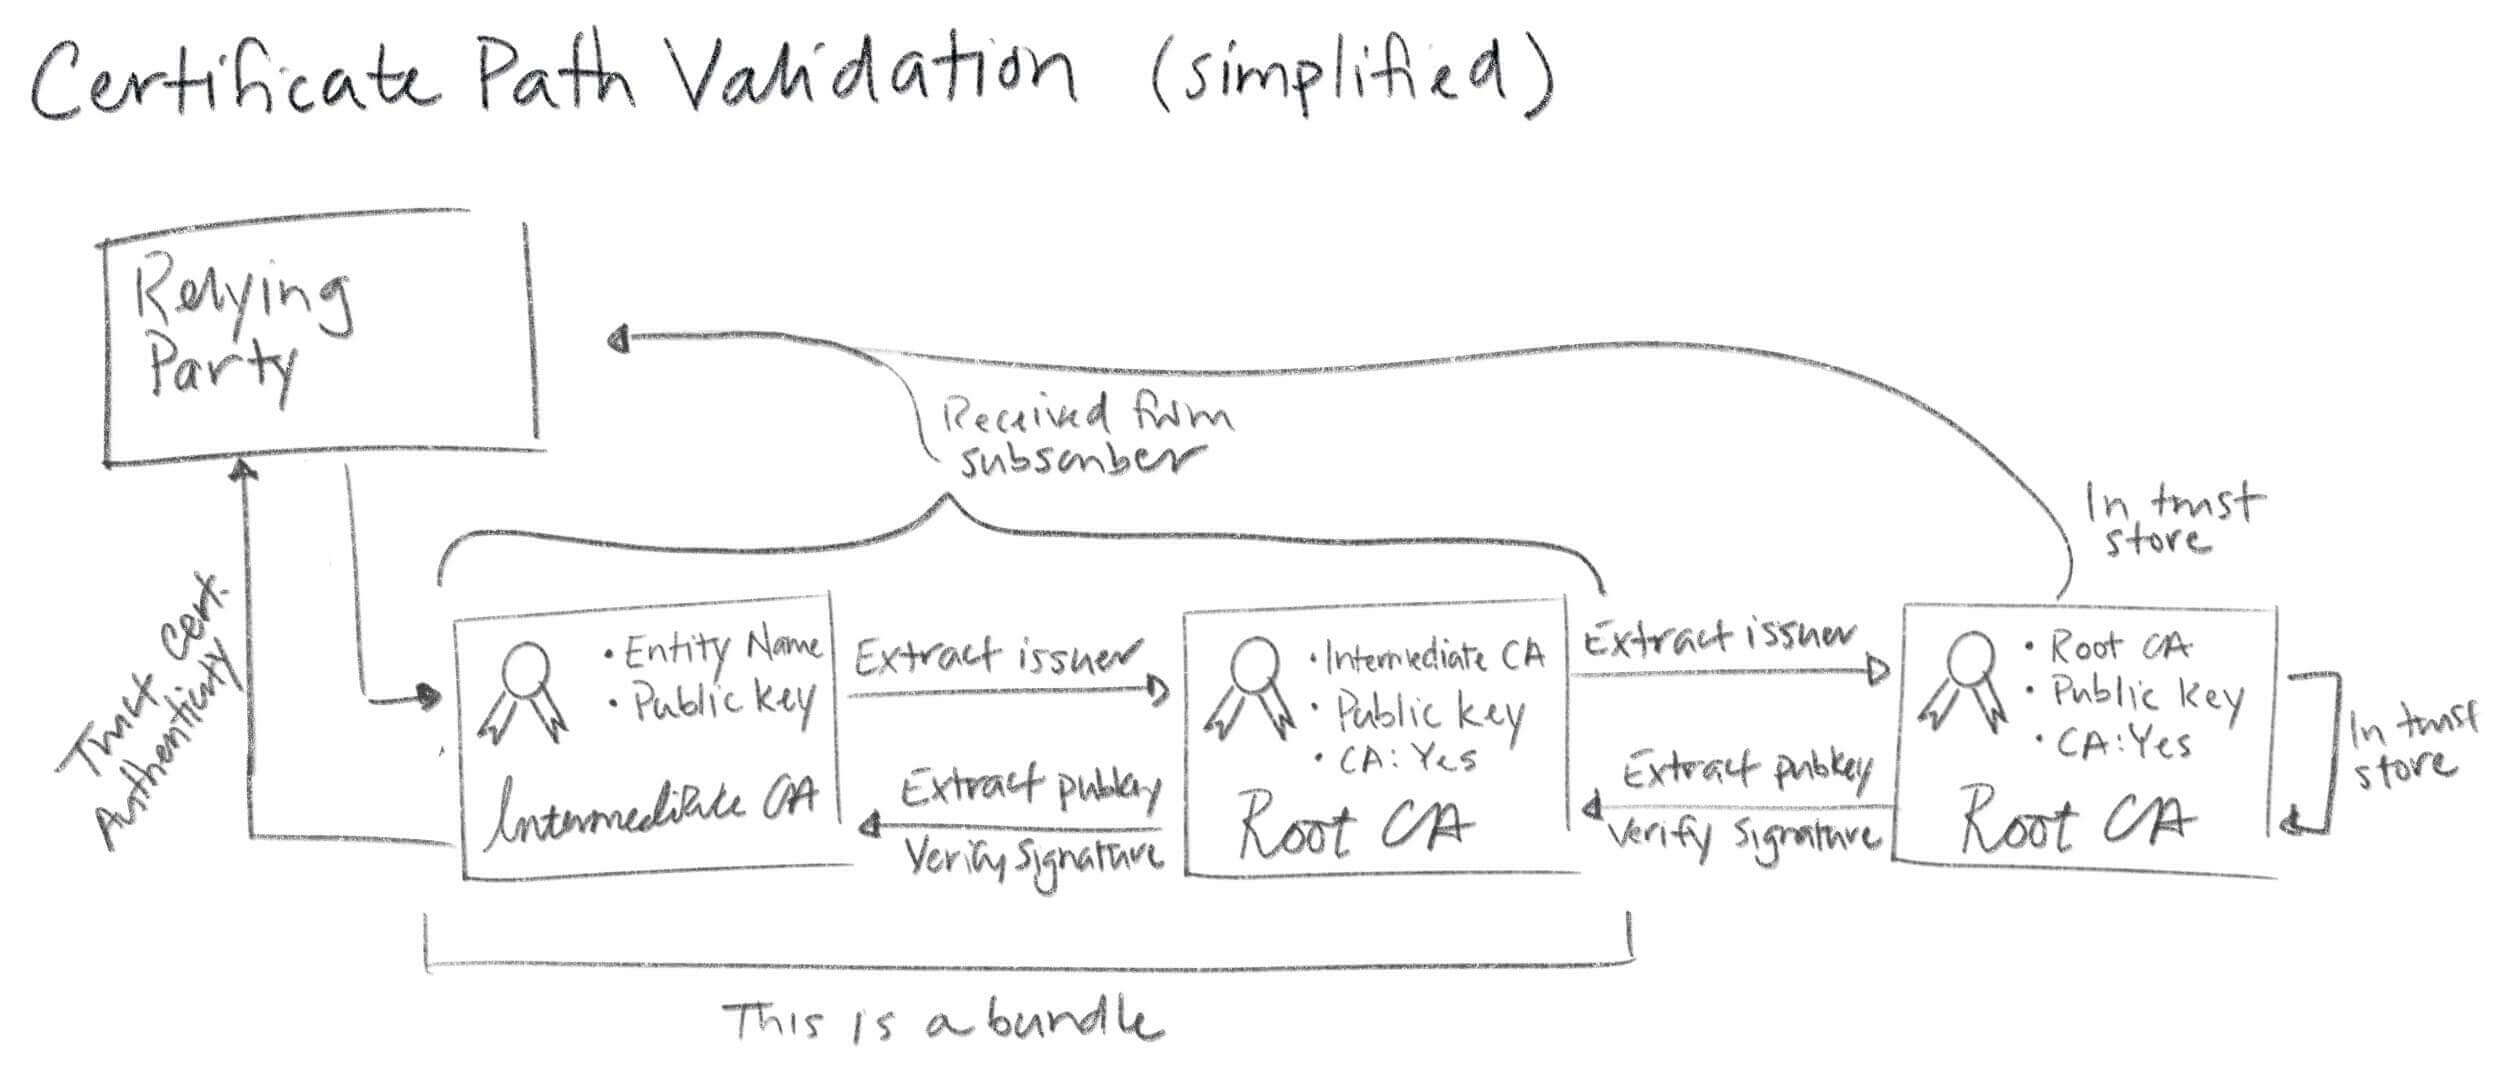 Certificate Path Validation (simplified)
Relying
Party
Received from
subscriber
In trust
store
Trust Cert.
Authenticity
• Entity Name
• Public key
Intermediate CA
Extract issuer
Extract pubkey
Verify Signature
• Intermediate CA
• Public key
• CA: Yes
Root CA
Extract issuer
Extract pubkey
Verify Signature
• Root CA
• Public key
• CA: Yes
Root CA
In trust
store
This is a bundle